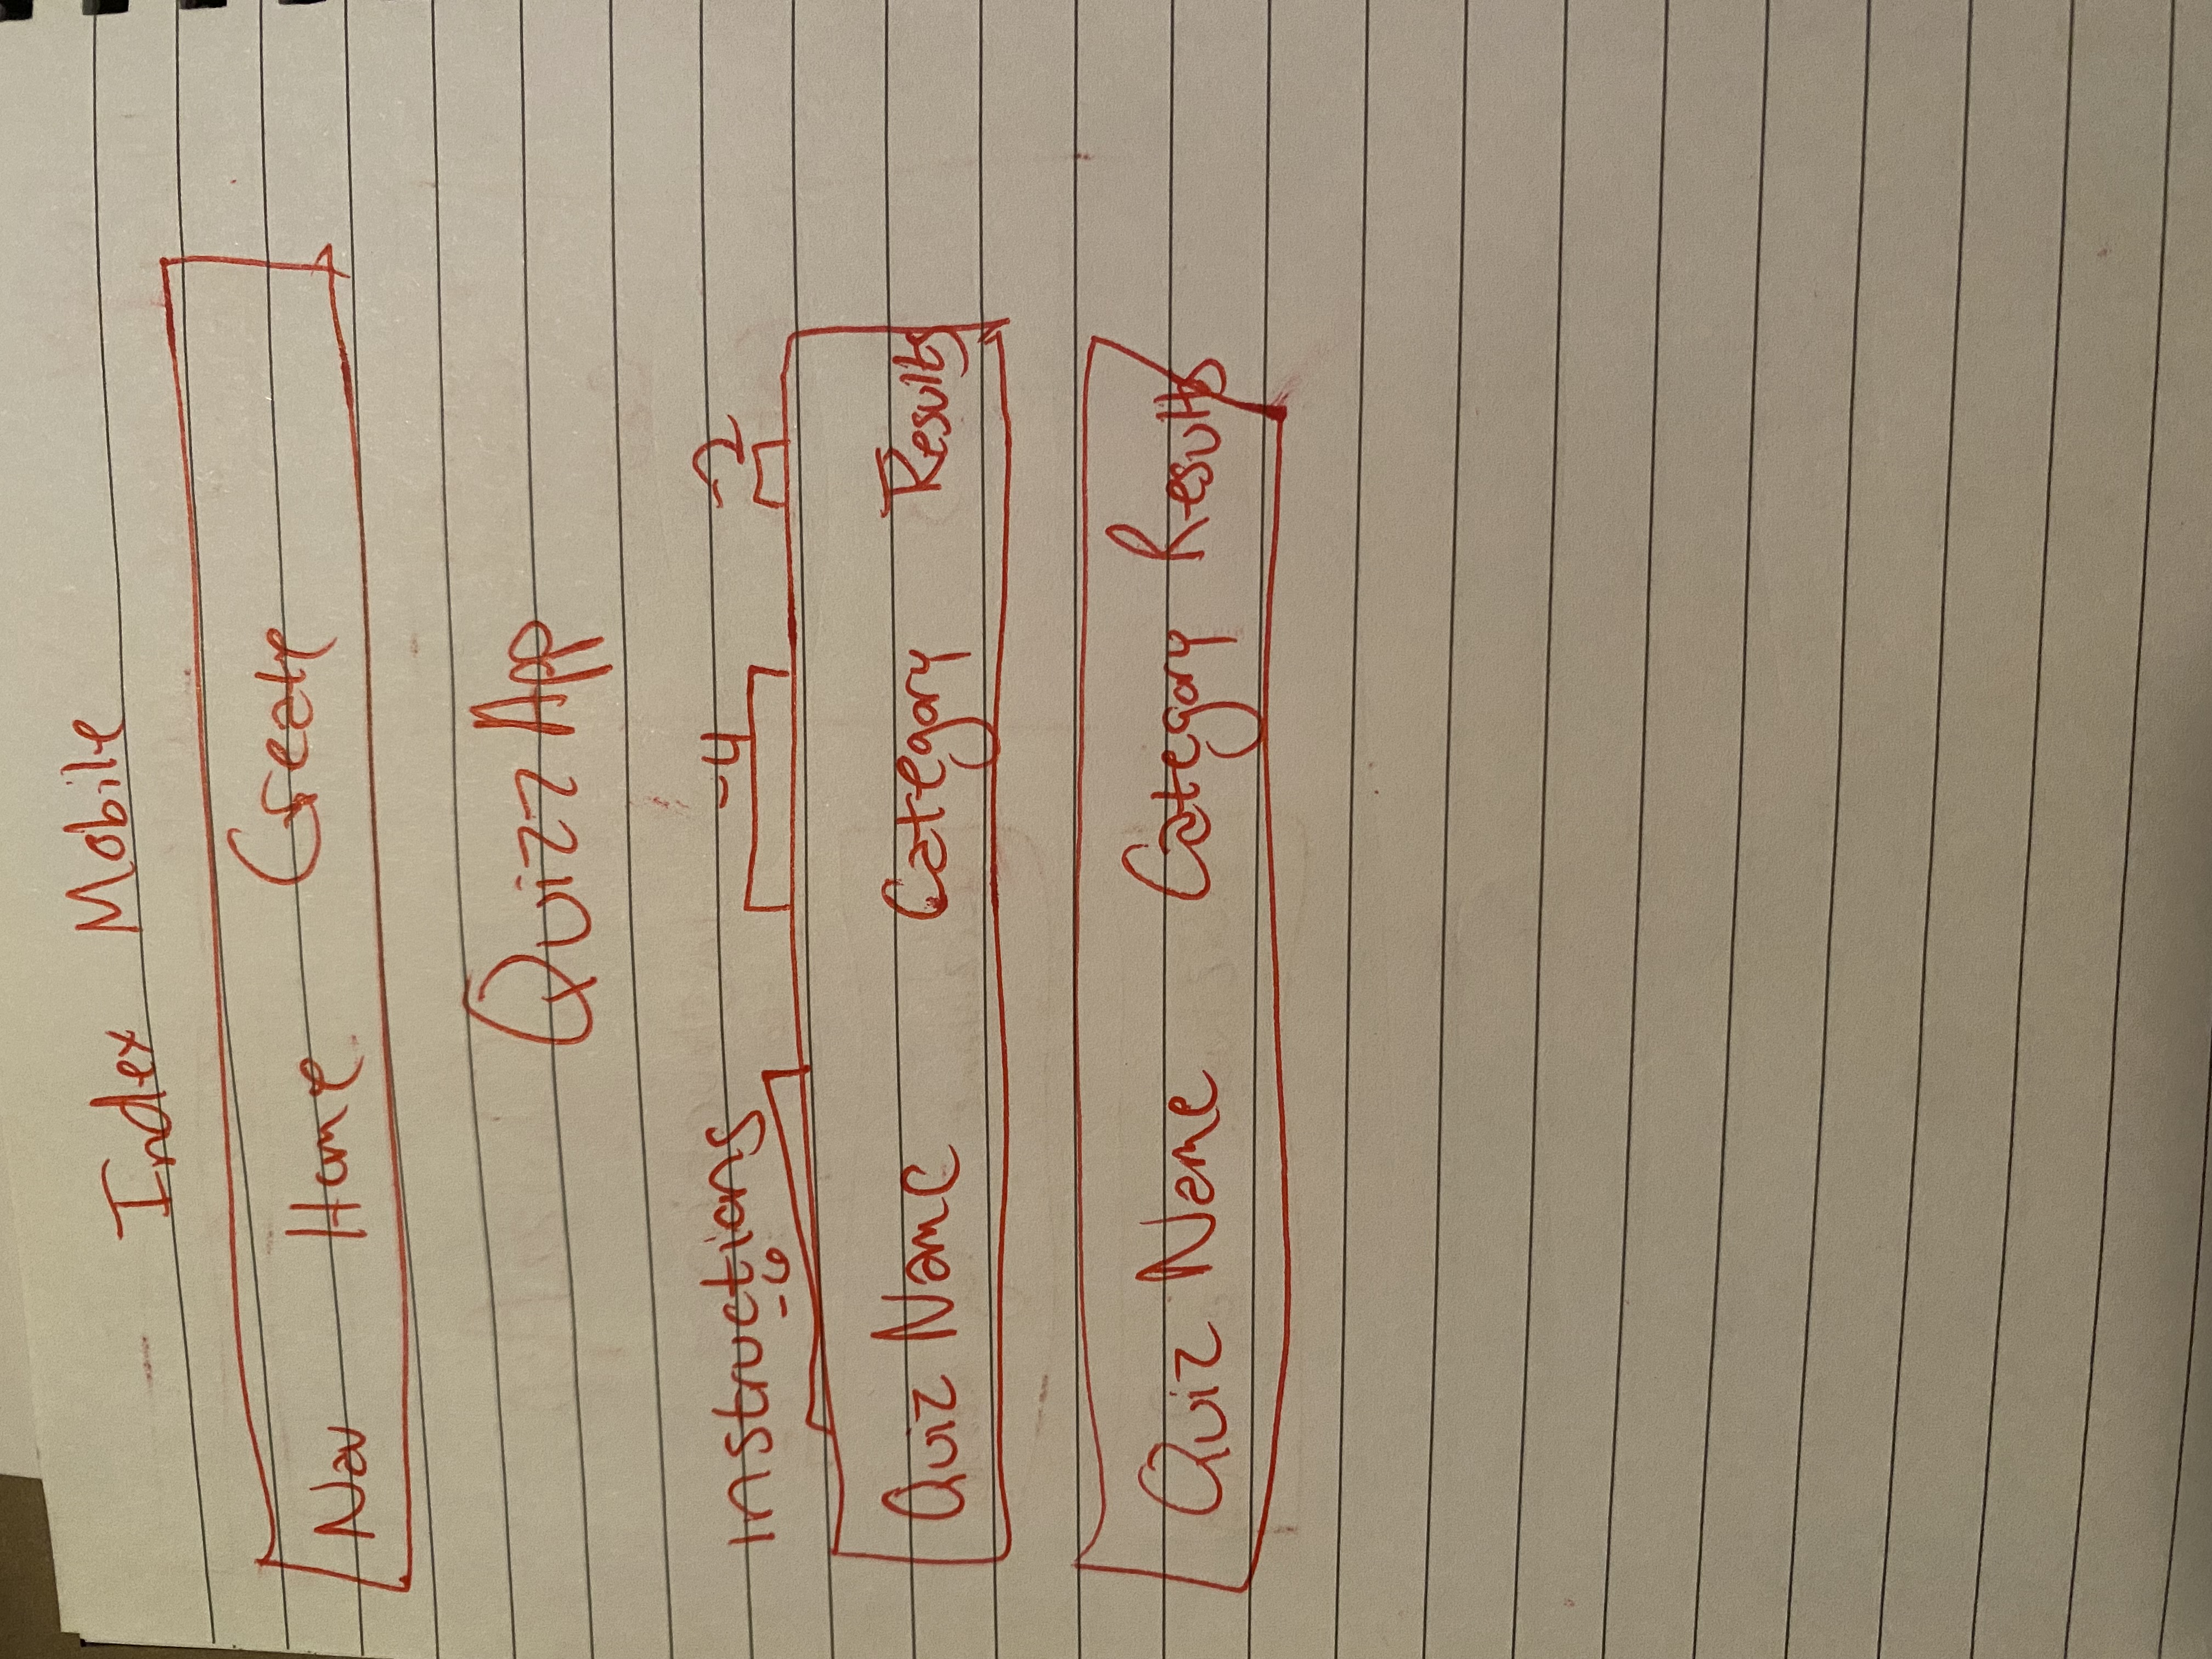 Index Mobile
Nav Home Create
Quizz App
Instructions
-6 -4 -2
Quiz Name Category Results
Quiz Name Category Results